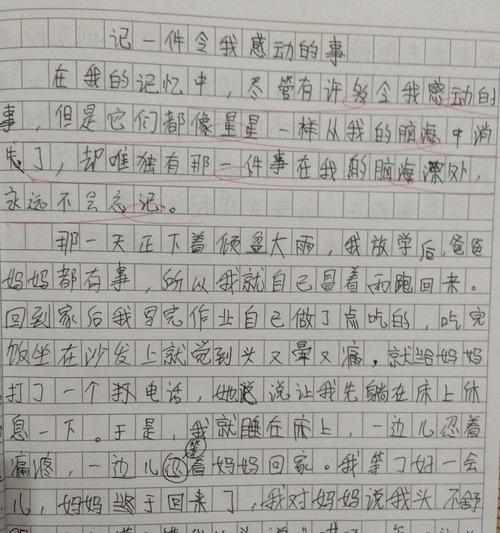 记一件令我感动的事
在我的记忆中，尽管有许多令我感动的
事，但是它们都像星星一样从我的脑海中消
失了，却唯独有那一件事在我的脑海深处，
永远不会忘记。
那一天正下着倾盆大雨，我放学后，爸爸
妈妈都有事，所以我就自己冒着雨跑回来。
回到家后我写完作业自己做了点吃的，吃完
饭坐在沙发上就觉到头又晕又痛，就给妈妈
打了一个电话，她说让我先躺在床上休
息一下。于是，我就睡在床上，一边儿忍着
痛疼，一边儿等着妈妈回家。我等了好一会
儿，妈妈终于回来了，我对妈妈说我头不舒